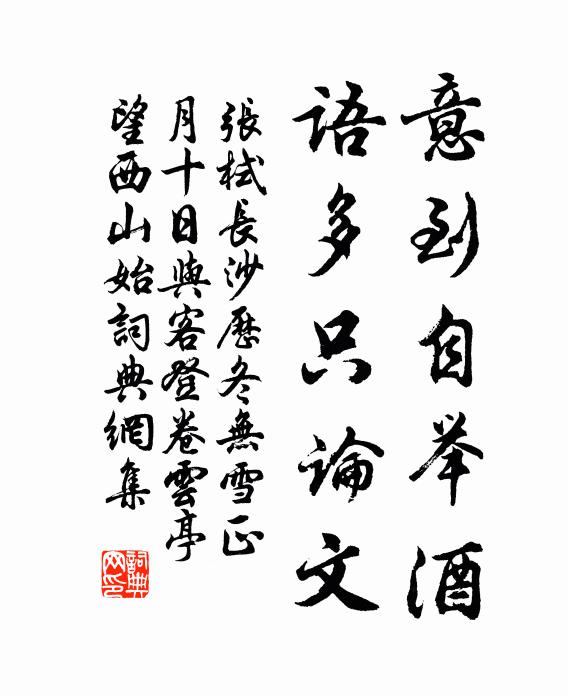 意到自举酒
語多只論文
張栻長沙歷冬無雪正
月十日與客登卷雲亭
望西山始詞典網集
詞典
网印